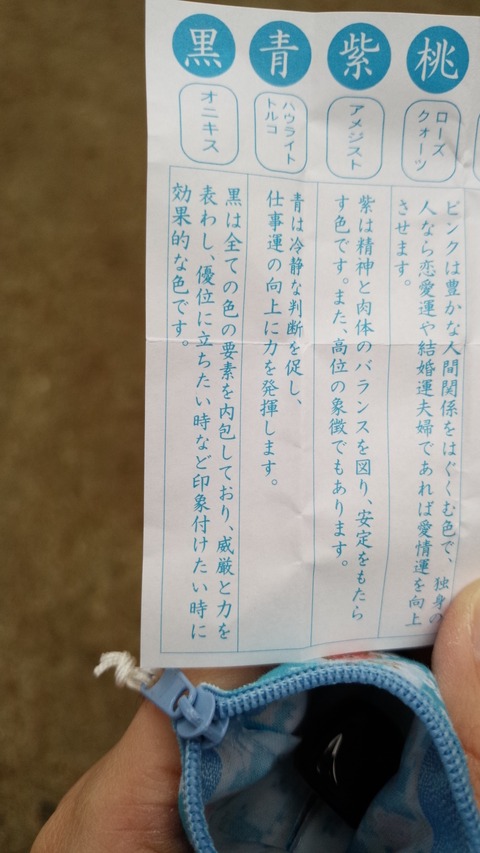 桃
ローズ
クォーツ
ピンクは豊かな人間関係をはぐくむ色で、独身の
人なら恋愛運や結婚運夫婦であれば愛情運を向上
させます。
紫
アメジスト
紫は精神と肉体のバランスを図り、安定をもたら
す色です。また、高位の象徴でもあります。
青
ハウライト
トルコ
青は冷静な判断を促し、
仕事運の向上に力を発揮します。
黒
オニキス
黒は全ての色の要素を内包しており、威厳と力を
表わし、優位に立ちたい時など印象付けたい時に
効果的な色です。